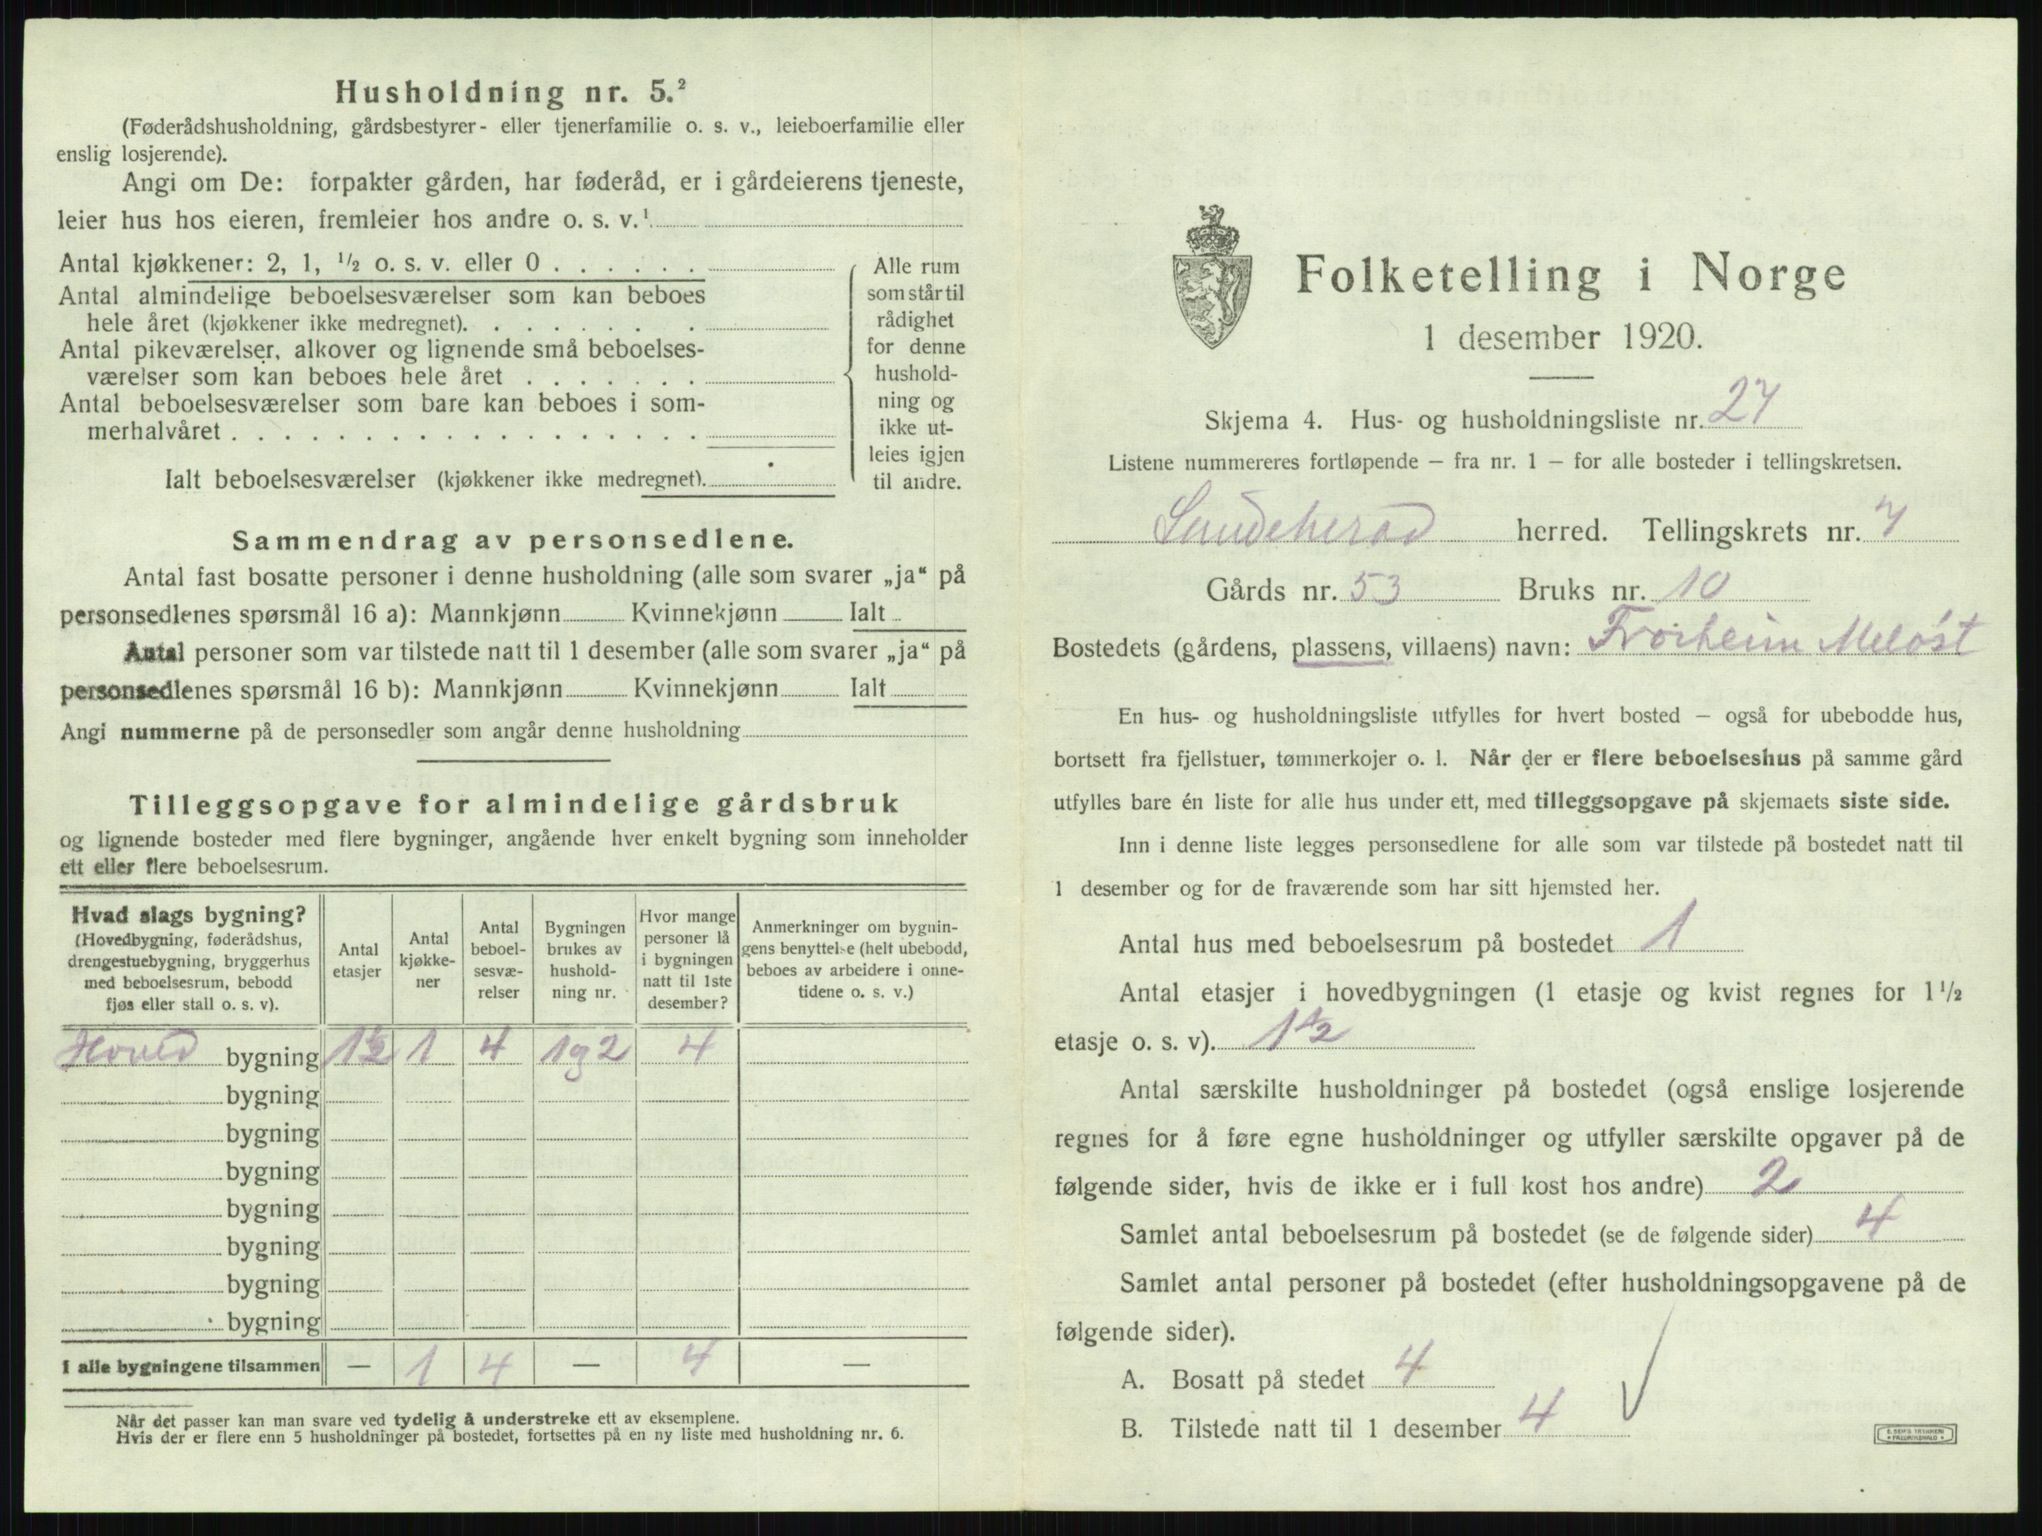 Husholdning nr. 5.²
(Føderådshusholdning, gårdsbestyrer- eller tjenerfamilie o. s. v., leieboerfamilie eller
enslig losjerende).
Angi om De: forpakter gården, har føderåd, er i gårdeierens tjeneste,
leier hus hos eieren, fremleier hos andre o. s. v.¹
Antal kjøkkener: 2, 1, ½ o. s. v. eller 0 . . . . . .
Antal almindelige beboelsesværelser som kan beboes
hele året (kjøkkener ikke medregnet). . . . . . . .
Antal pikeværelser, alkover og lignende små beboelses-
værelser som kan beboes hele året . . . . . . .
Antal beboelsesværelser som bare kan beboes i som-
merhalvåret . . . . . . . . . . . . . . . . . .
Ialt beboelsesværelser (kjøkkener ikke medregnet).
Alle rum
som står til
rådighet
for denne
hushold-
ning og
ikke ut-
leies igjen
til andre.
Sammendrag av personsedlene.
Antal fast bosatte personer i denne husholdning (alle som svarer „ja“ på
personsedlenes spørsmål 16 a): Mannkjønn Kvinnekjønn Ialt
Antal personer som var tilstede natt til 1 desember (alle som svarer „ja“ på
personsedlenes spørsmål 16 b): Mannkjønn Kvinnekjønn Ialt
Angi nummerne på de personsedler som angår denne husholdning
Tilleggsopgave for almindelige gårdsbruk
og lignende bosteder med flere bygninger, angående hver enkelt bygning som inneholder
ett eller flere beboelsesrum.
Hvad slags bygning?
(Hovedbygning, føderådshus,
drengestuebygning, bryggerhus
med beboelsesrum, bebodd
fjøs eller stall o. s. v).
Antal
etasjer
Antal
kjøkke-
ner
Antal
beboel-
sesvæ-
relser
Bygningen
brukes av
hushold-
ning nr.
Hvor mange
personer lå
i bygningen
natt til 1ste
desember?
Anmerkninger om bygnin-
gens benyttelse (helt ubebodd,
beboes av arbeidere i onne-
tidene o. s. v.)
Hoved bygning 1½ 1 4 1 g 2 4
bygning
bygning
bygning
bygning
bygning
bygning
bygning
I alle bygningene tilsammen — 1 4 — 4 —
Når det passer kan man svare ved tydelig å understreke ett av eksemplene.
Hvis der er flere enn 5 husholdninger på bostedet, fortsettes på en ny liste med husholdning nr. 6.
Folketelling i Norge
1 desember 1920.
Skjema 4. Hus- og husholdningsliste nr. 27
Listene nummereres fortløpende – fra nr. 1 – for alle bosteder i tellingskretsen.
Sandeherad herred. Tellingskrets nr. 7
Gårds nr. 53 Bruks nr. 10
Bostedets (gårdens, plassens, villaens) navn: Frorheim Meløst
En hus- og husholdningsliste utfylles for hvert bosted – også for ubebodde hus,
bortsett fra fjellstuer, tømmerkojer o. l. Når der er flere beboelseshus på samme gård
utfylles bare én liste for alle hus under ett, med tilleggsopgave på skjemaets siste side.
Inn i denne liste legges personsedlene for alle som var tilstede på bostedet natt til
1 desember og for de fraværende som har sitt hjemsted her.
Antal hus med beboelsesrum på bostedet 1
Antal etasjer i hovedbygningen (1 etasje og kvist regnes for 1½
etasje o. s. v). 1½
Antal særskilte husholdninger på bostedet (også enslige losjerende
regnes for å føre egne husholdninger og utfyller særskilte opgaver på de
følgende sider, hvis de ikke er i full kost hos andre) 2
Samlet antal beboelsesrum på bostedet (se de følgende sider) 4
Samlet antal personer på bostedet (efter husholdningsopgavene på de
følgende sider).
A. Bosatt på stedet 4
B. Tilstede natt til 1 desember 4